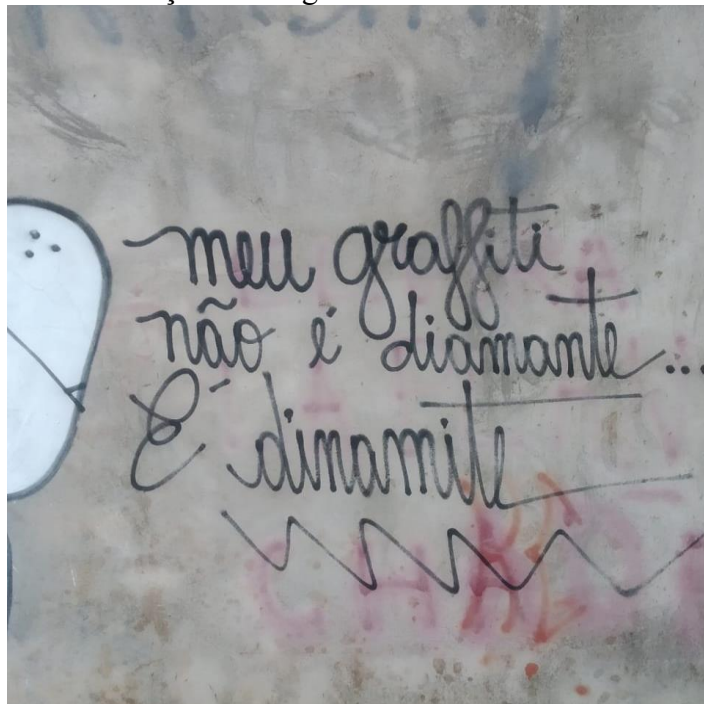 meu graffiti
não é diamante...
É dinamite